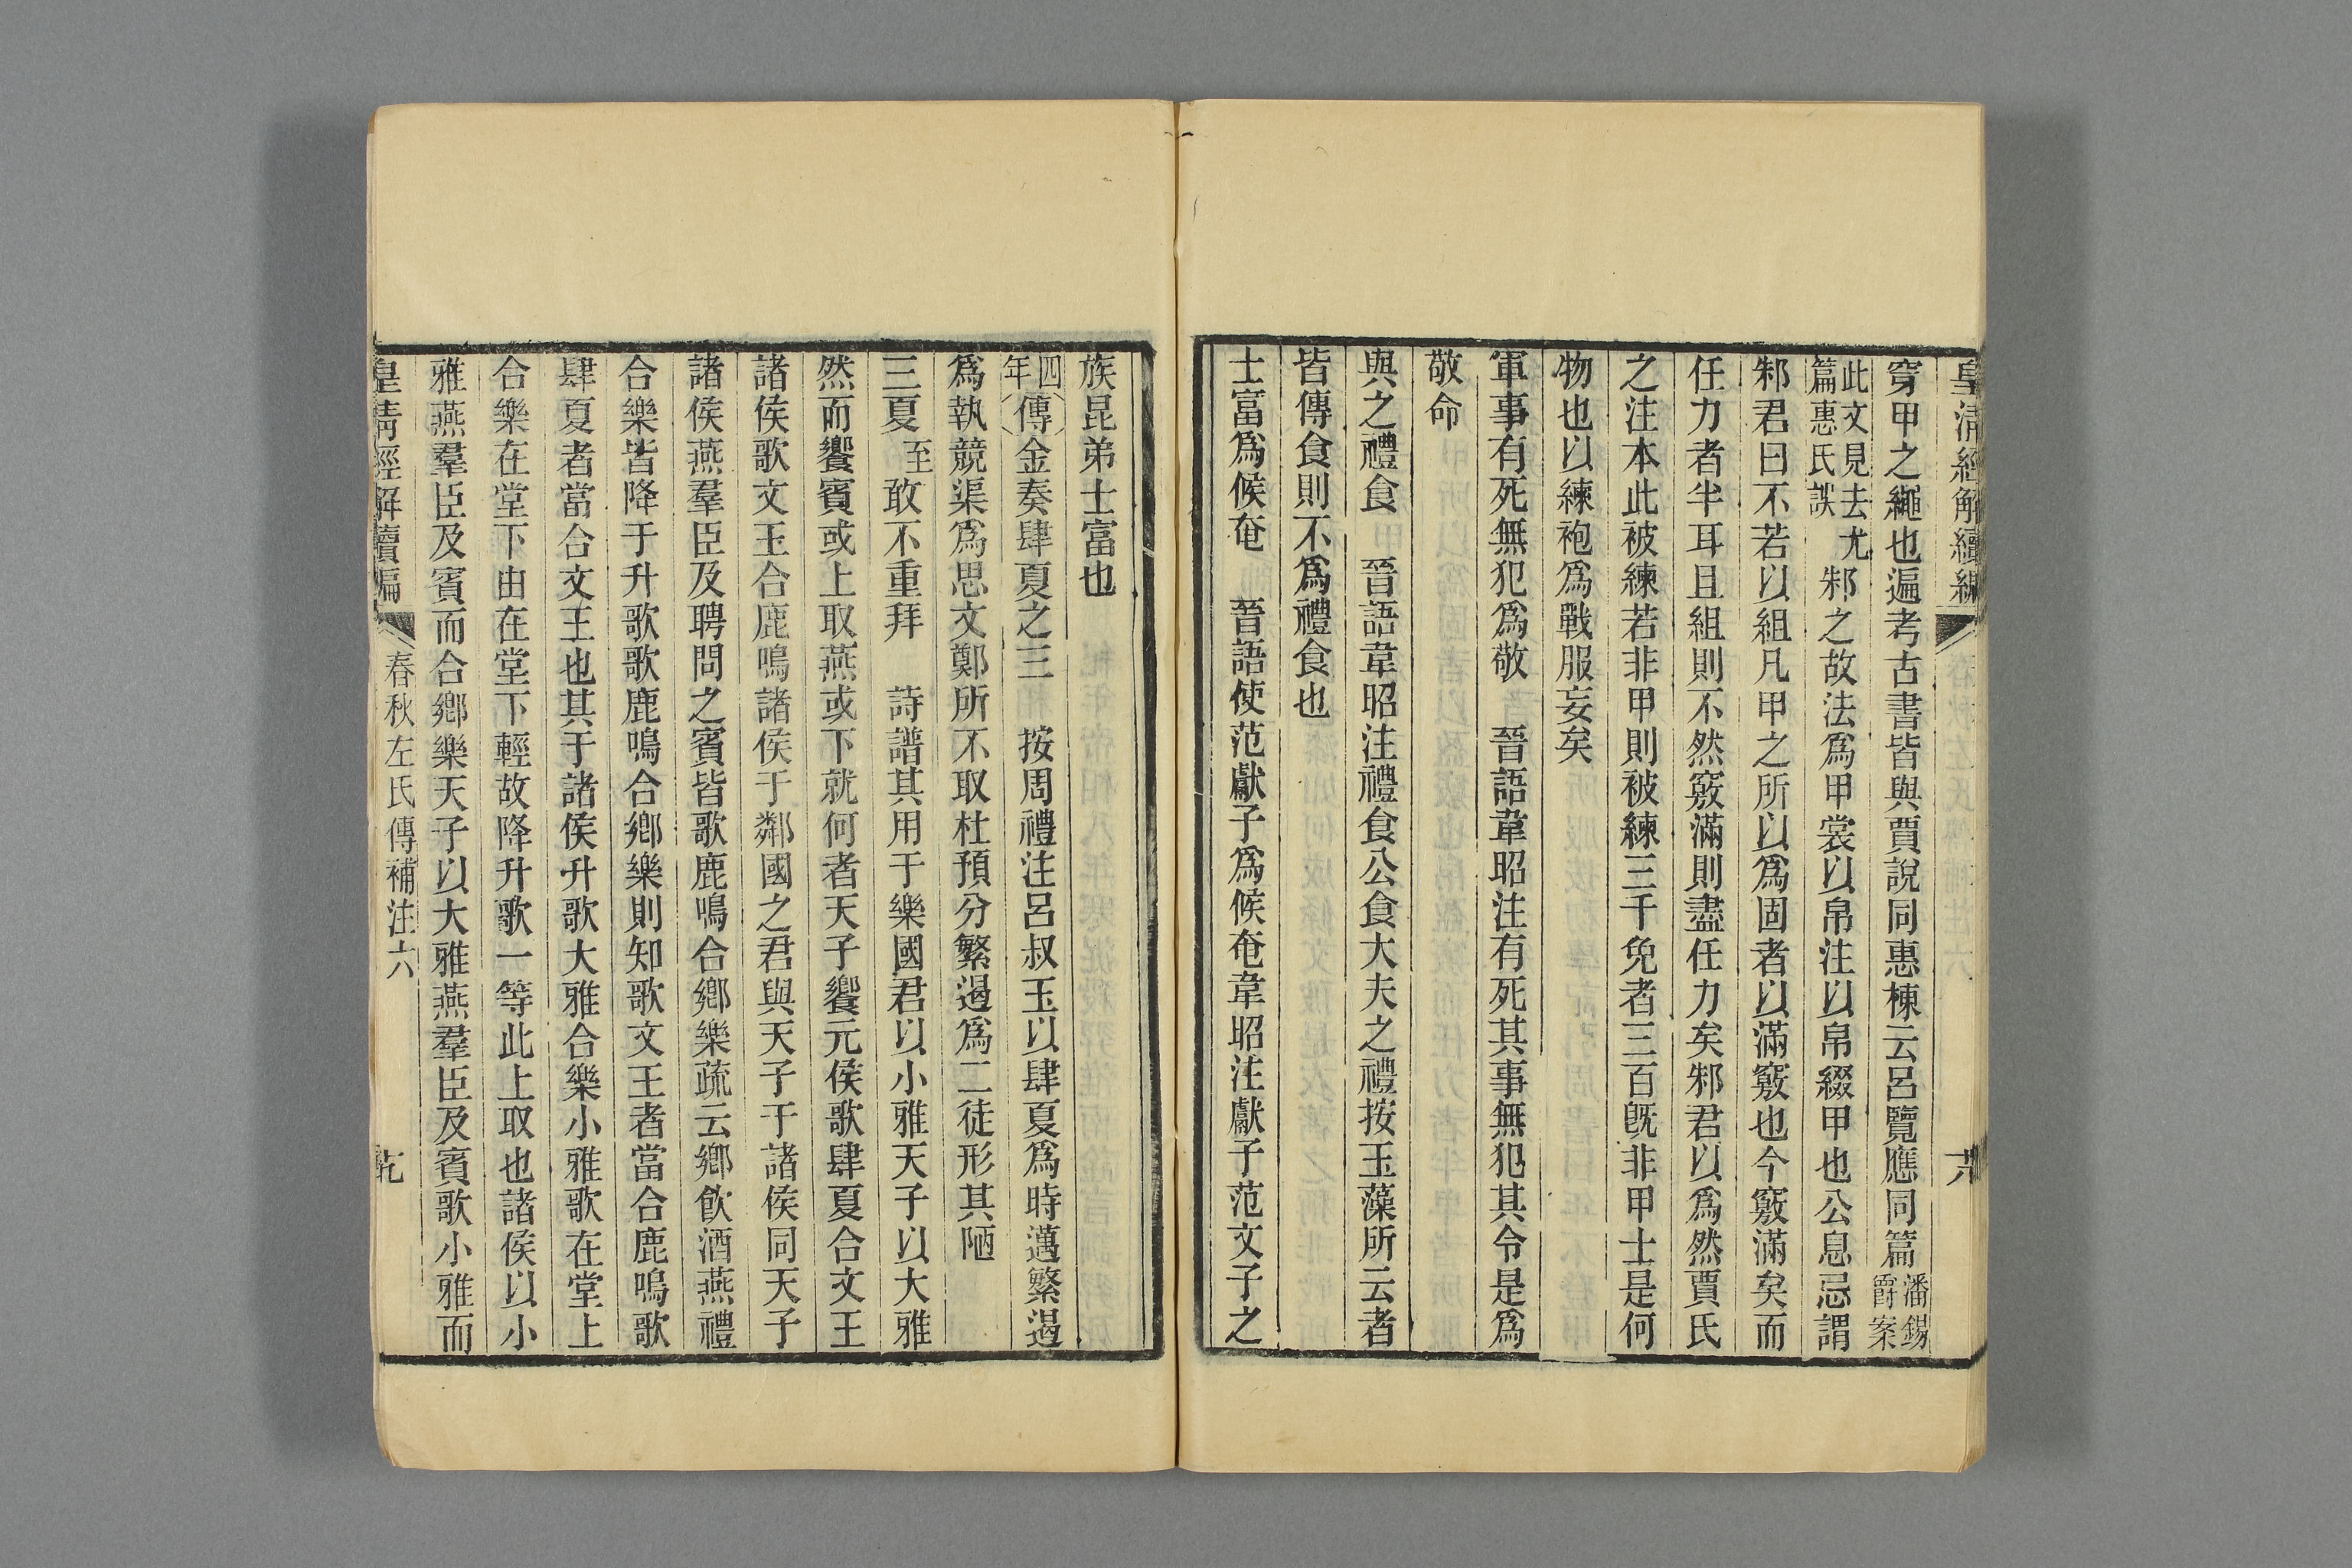 皇清經解續編
穿甲之繩也遍考古書皆與賈說同惠棟云呂覽應同篇潘錫爵案
此文見去尤篇惠氏誤邾之故法爲甲裳以帛注以帛綴甲也公息忌謂
邾君曰不若以組凡甲之所以爲固者以滿竅也今竅滿矣而
任力者半耳且組則不然竅滿則盡任力矣邾君以爲然賈氏
之注本此被練若非甲則被練三千免者三百旣非甲士是何
物也以練袍爲戰服妄矣
軍事有死無犯爲敬　晉語韋昭注有死其事無犯其令是爲
敬命
與之禮食　晉語韋昭注禮食公食大夫之禮按玉藻所云者
皆傳食則不爲禮食也
士富爲候奄　晉語使范獻子爲候奄韋昭注獻子范文子之
族昆弟士富也
四年傳金奏肆夏之三　按周禮注呂叔玉以肆夏爲時邁繁遏
爲執競渠爲思文鄭所不取杜預分繁遏爲二徒形其陋
三夏至敢不重拜　詩譜其用于樂國君以小雅天子以大雅
然而饗賓或上取燕或下就何者天子饗元侯歌肆夏合文王
諸侯歌文王合鹿鳴諸侯于鄰國之君與天子于諸侯同天子
諸侯燕羣臣及聘問之賓皆歌鹿鳴合鄉樂疏云鄉飮酒燕禮
合樂皆降于升歌歌鹿鳴合鄉樂則知歌文王者當合鹿鳴歌
肆夏者當合文王也其于諸侯升歌大雅合樂小雅歌在堂上
合樂在堂下由在堂下輕故降升歌一等此上取也諸侯以小
雅燕羣臣及賓而合鄉樂天子以大雅燕羣臣及賓歌小雅而
皇清經解續編　春秋左氏傳補注六